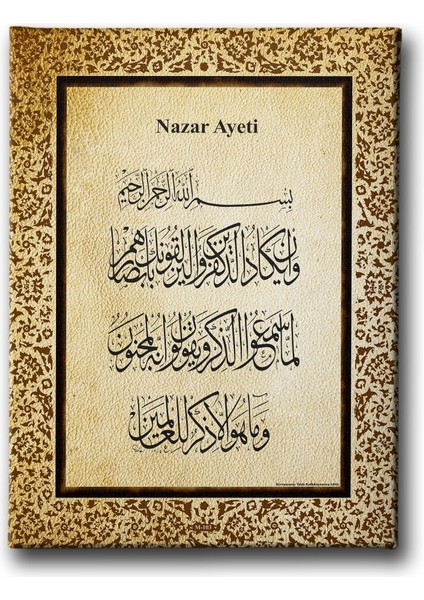 Nazar Ayeti
بسم الله الرحمن الرحيم
وإن يكاد الذين كفروا ليزلقونك بأبصارهم
لما سمعوا الذكر ويقولون إنه لمجنون
وما هو إلا ذكر للعالمين
M-103